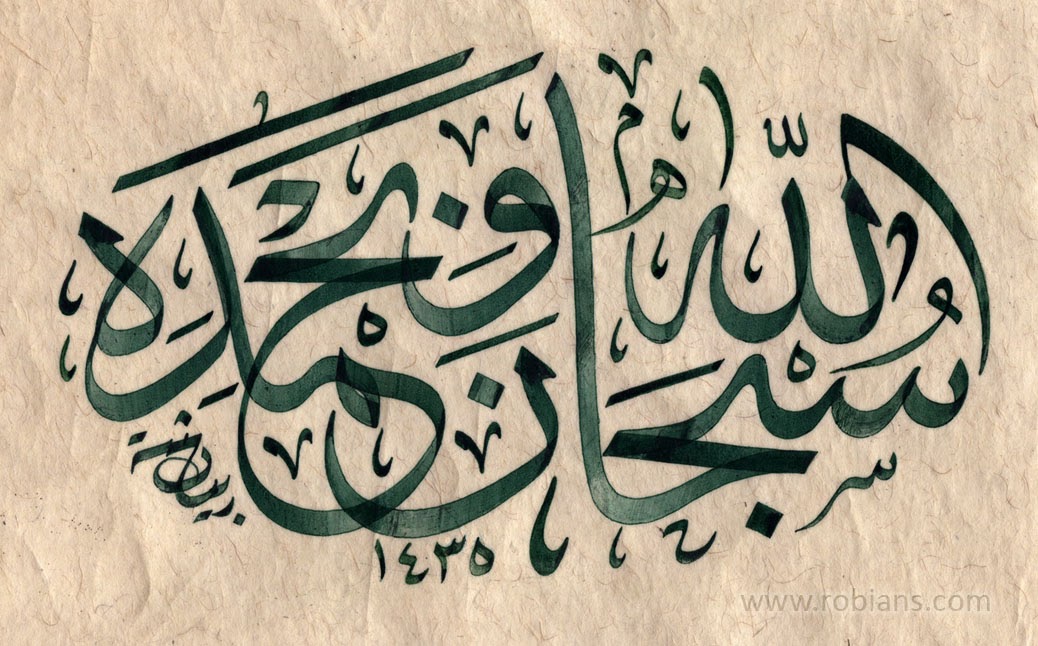 سُبْحَانَ اللّٰهِ وَبِحَمْدِهِ
١٤٣٥
www.robians.com